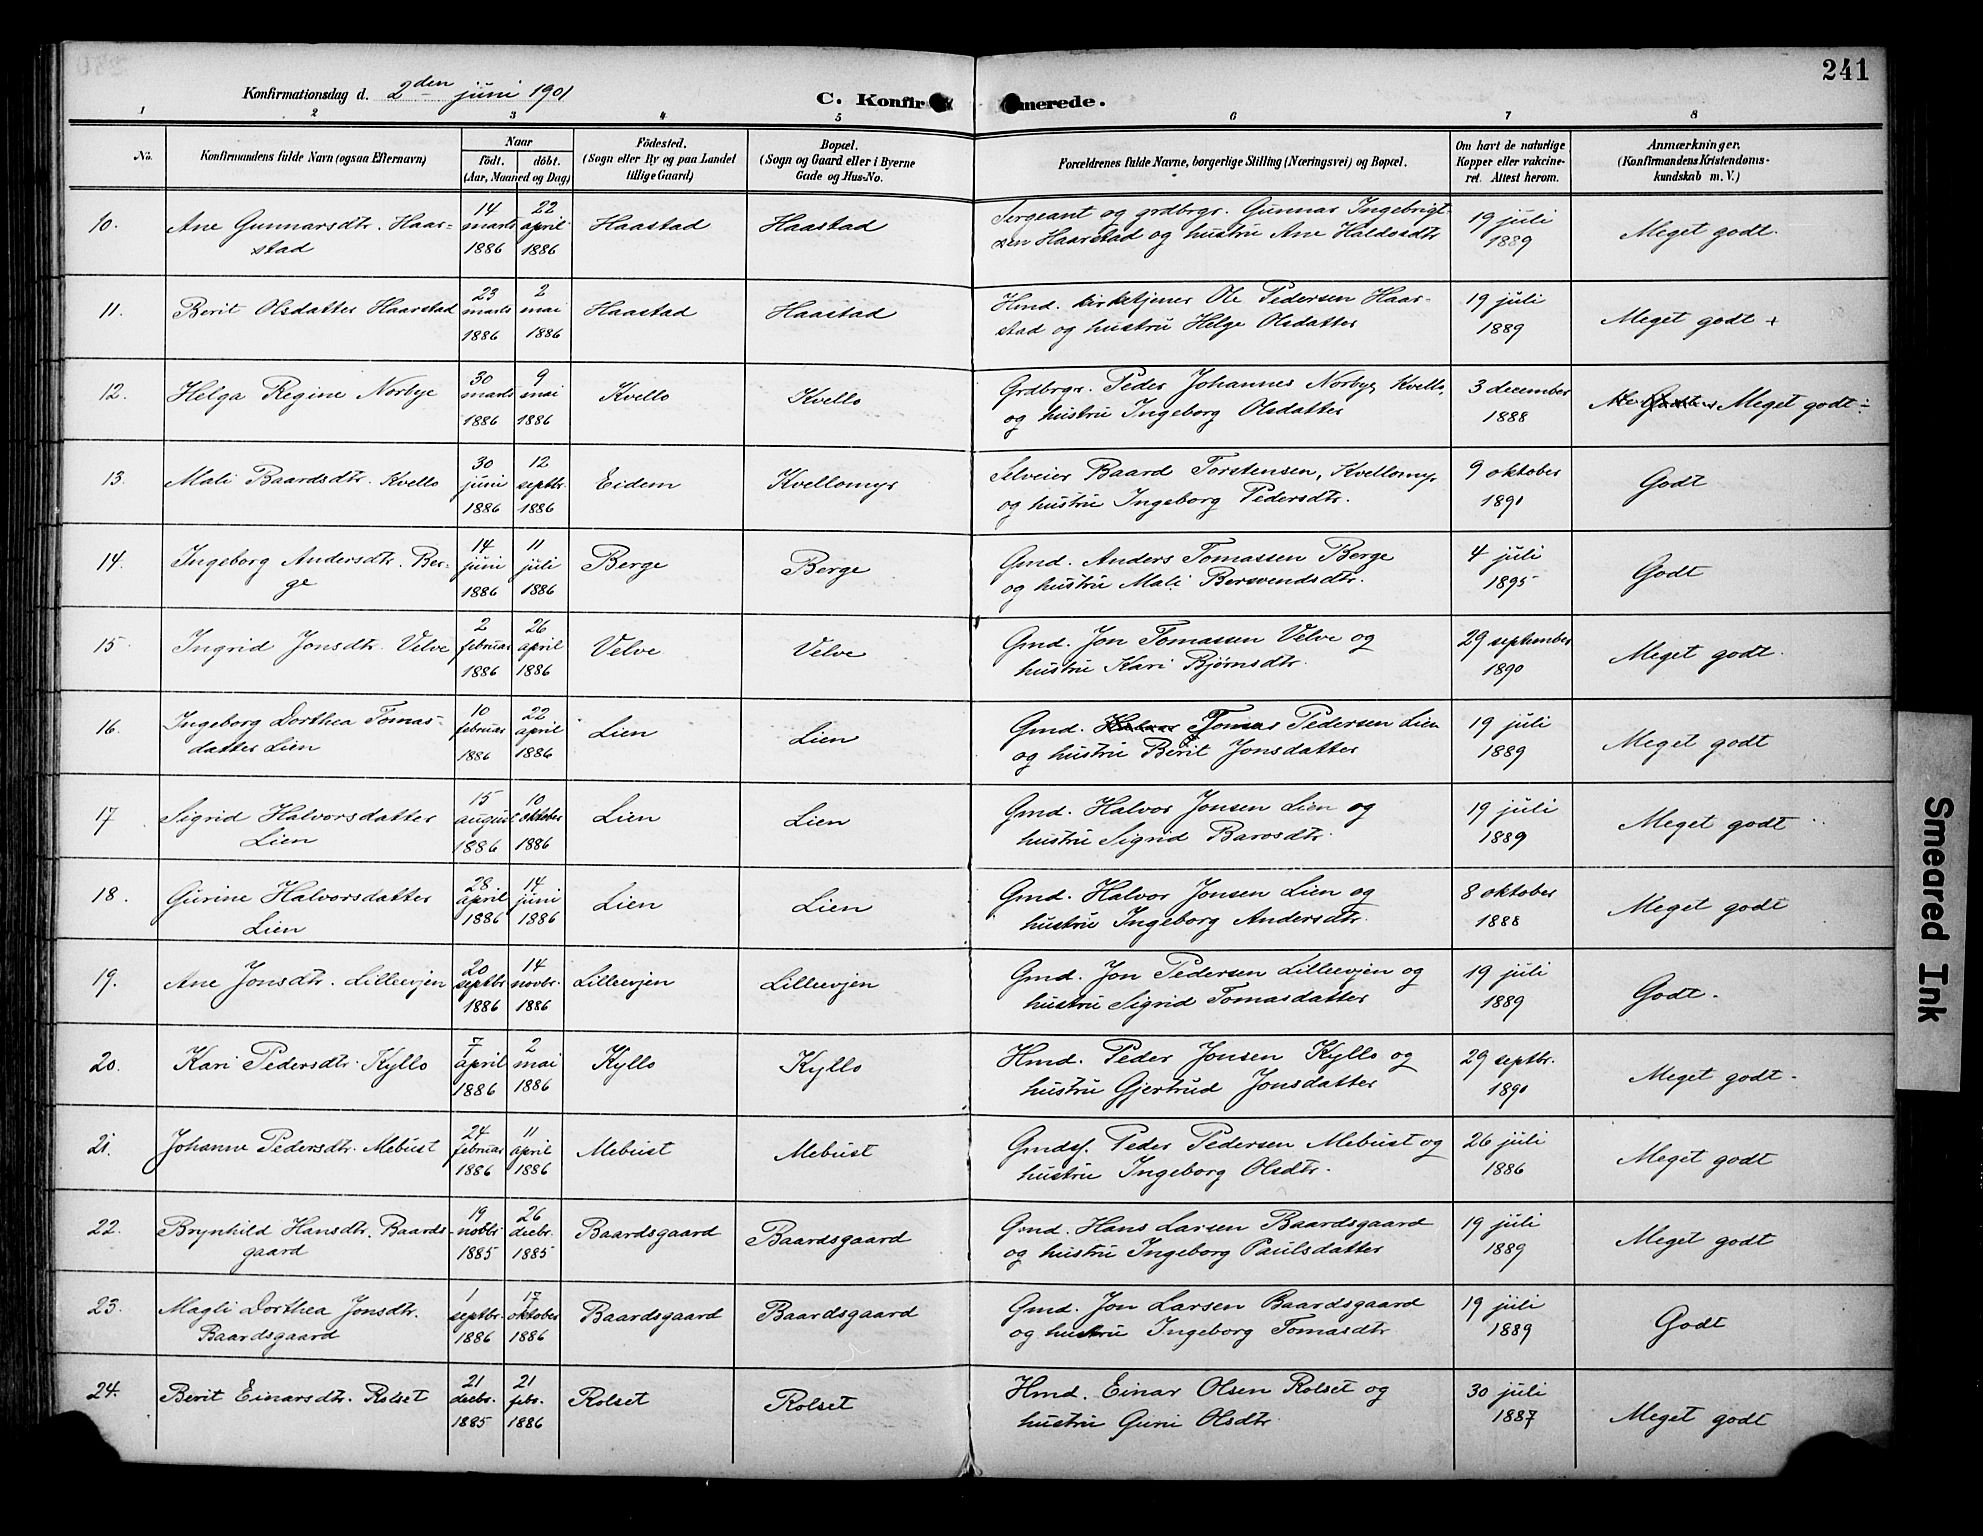 241
Konfirmationsdag d. 2den juni 1901
C. Konfir merede.
1 2 3 4 5 6 7 8
No. Konfirmandens fulde Navn (ogsaa Efternavn) Naar født. døbt. (Aar, Maaned og Dag) Födested. (Sogn eller By og paa Landet tillige Gaard) Bopæl. (Sogn og Gaard eller i Byerne Gade og Hus-No. Forældrenes fulde Navne, borgerlige Stilling (Næringsvei) og Bopæl. Om havt de naturlige Kopper eller vakcineret. Attest herom. Anmærkninger. (Konfirmandens Kristendomskundskab m. V.)
10. Ane Gunnarsdtr. Haarstad 14 marts 1886 22 april 1886 Haastad Haastad Sergeant og grdbrgr. Gunnar Ingebrigtsen Haarstad og hustru Ane Haldosdtr 19 juli 1889 Meget godt.
11. Berit Olsdatter Haarstad 23 marts 1886 2 mai 1886 Haastad Haastad Hmd. kirketjener Ole Pedersen Haarstad og hustru Helge Olsdatter 19 juli 1889 Meget godt +
12. Helga Regine Norbye 30 marts 1886 9 mai 1886 Kvello Kvello Grdbrgr. Peder Johannes Norbye, Kvello, og hustru Ingeborg Olsdatter 3 december 1888 Meget godt ÷
13. Mali Baardsdtr. Kvello 30 juni 1886 12 septbr. 1886 Eidem Kvellomyr Selveier Baard Torstensen, Kvellomyr og hustru Ingeborg Pedersdtr. 9 oktober 1890 Godt
14. Ingeborg Andersdtr. Berge 14 juni 1886 11 juli 1886 Berge Berge Gmd. Anders Tomassen Berge og hustru Mali Bersvendsdtr. 4 juli 1895 Godt
15. Ingrid Jonsdtr. Velve 2 februar 1886 26 april 1886 Velve Velve Gmd. Jon Tomassen Velve og hustru Kari Bjørnsdtr. 29 september 1890 Meget godt.
16. Ingeborg Dorthea Tomasdatter Lien 10 februar 1886 22 april 1886 Lien Lien Gmd. Halvor Tomas Pedersen Lien og hustru Berit Jonsdatter 19 juli 1889 Meget godt
17 Sigrid Halvorsdatter Lien 15 august 1886 10 oktober 1886 Lien Lien Gmd. Halvor Jonsen Lien og hustru Sigrid Barosdtr. 19 juli 1889 Meget godt
18. Gurine Halvorsdatter Lien 28 april 1886 14 juni 1886 Lien Lien Gmd. Halvor Jonsen Lien og hustru Ingeborg Andersdtr. 8 oktober 1888 Meget godt
19. Ane Jonsdtr. Lilleevjen 20 septbr 1886 14 novbr. 1886 Lilleevjen Lilleevjen Gmd. Jon Pedersen Lilleevjen og hustru Sigrid Tomasdatter 19 juli 1889 Godt.
20. Kari Pedersdtr. Kyllo 7 april 1886 2 mai 1886 Kyllo Kyllo Hmd. Peder Jonsen Kyllo og hustru Gjertrud Jonsdatter 29 septbr. 1890 Meget godt.
21. Johanne Pedersdtr. Mebust 24 februar 1886 11 april 1886 Mebust Mebust Gmdsf. Peder Pedersen Mebust og hustru Ingeborg Olsdtr. 26 juli 1886 Meget godt
22. Brynhild Hansdtr. Baardsgaard 19 novbr 1885 26 decbr. 1885 Baardsgaard Baardsgaard Gmd. Hans Larsen Baardsgaard og hustru Ingeborg Paulsdatter 19 juli 1889 Meget godt
23. Magli Dorthea Jonsdtr. Baardsgaard 1 septbr. 1886 17 oktober 1886 Baardsgaard Baardsgaard Gmd. Jon Larsen Baardsgaard og hustru Ingeborg Tomasdtr 19 juli 1889 Godt
24. Berit Einarsdtr. Rolset 21 decbr. 1885 21 febr. 1886 Rolset Rolset Hmd. Einar Olsen Rolset og hustru Guri Olsdtr. 30 juli 1887 Meget godt
Smeared Ink